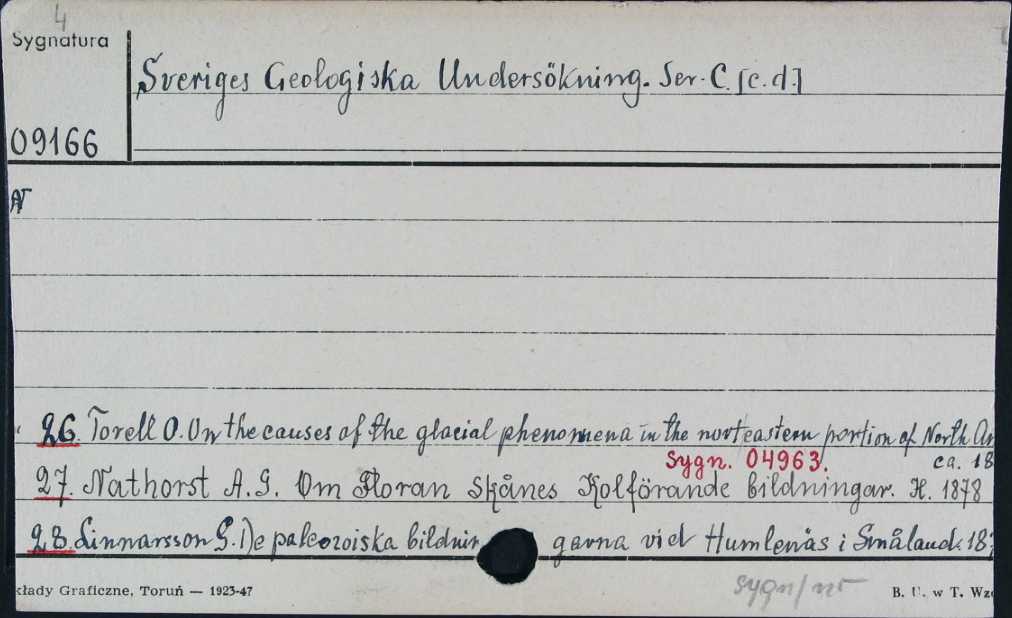 4
Sygnatura
Sveriges Geologiska Undersökning. Ser. C. [c.d.]
09166
26. Torell O. On the causes of the glacial phenomena in the norteastern portion of North Am
Sygn. 04963. ca. 18
27. Nathorst A.G. Om Floran Skånes Kolförande bildningar. H. 1878
28. Linnarsson G. De paleozoiska bildnin garna vid Humlenäs i Småland. 18
kłady Graficzne, Toruń — 1923-47
sygn/nr
B. U. w T. Wzó